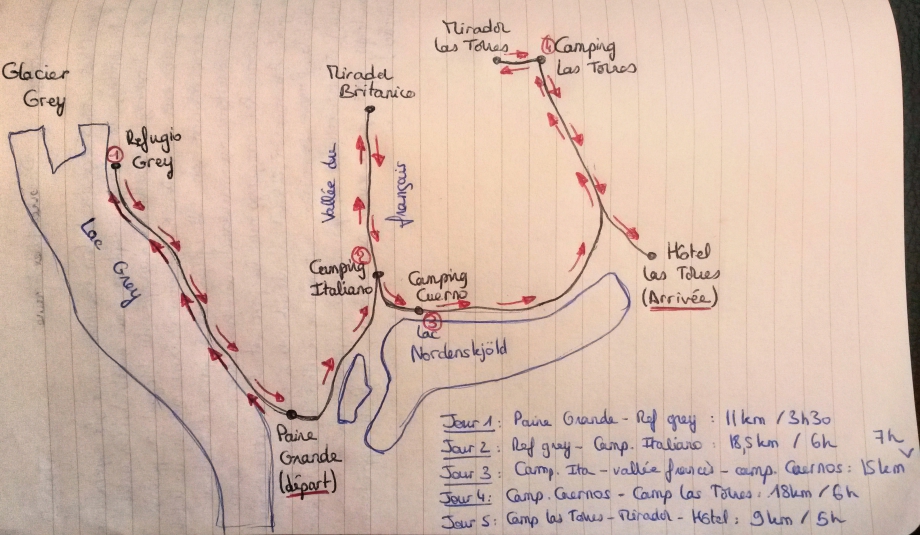 Glacier
Grey
① Refugio
Grey
Lac Grey
Mirador
Britanico
Vallée du
français
② Camping
Italiano
Camping
Cuerno
③
Lac
Nordenskjöld
Mirador
las Torres
④ Camping
las Torres
Hôtel
las Torres
(Arrivée)
Paine
Grande
(départ)
Jour 1: Paine Grande - Ref grey : 11 km / 3h30
Jour 2: Ref grey - Camp. Italiano : 18,5 km / 6h
Jour 3: Camp. Ita - vallée francis - camp. Cuernos : 15 km
7h
Jour 4: Camp. Cuernos - Camp las Torres : 18 km / 6h
Jour 5: Camp las Torres - Mirador - Hôtel : 9 km / 5h